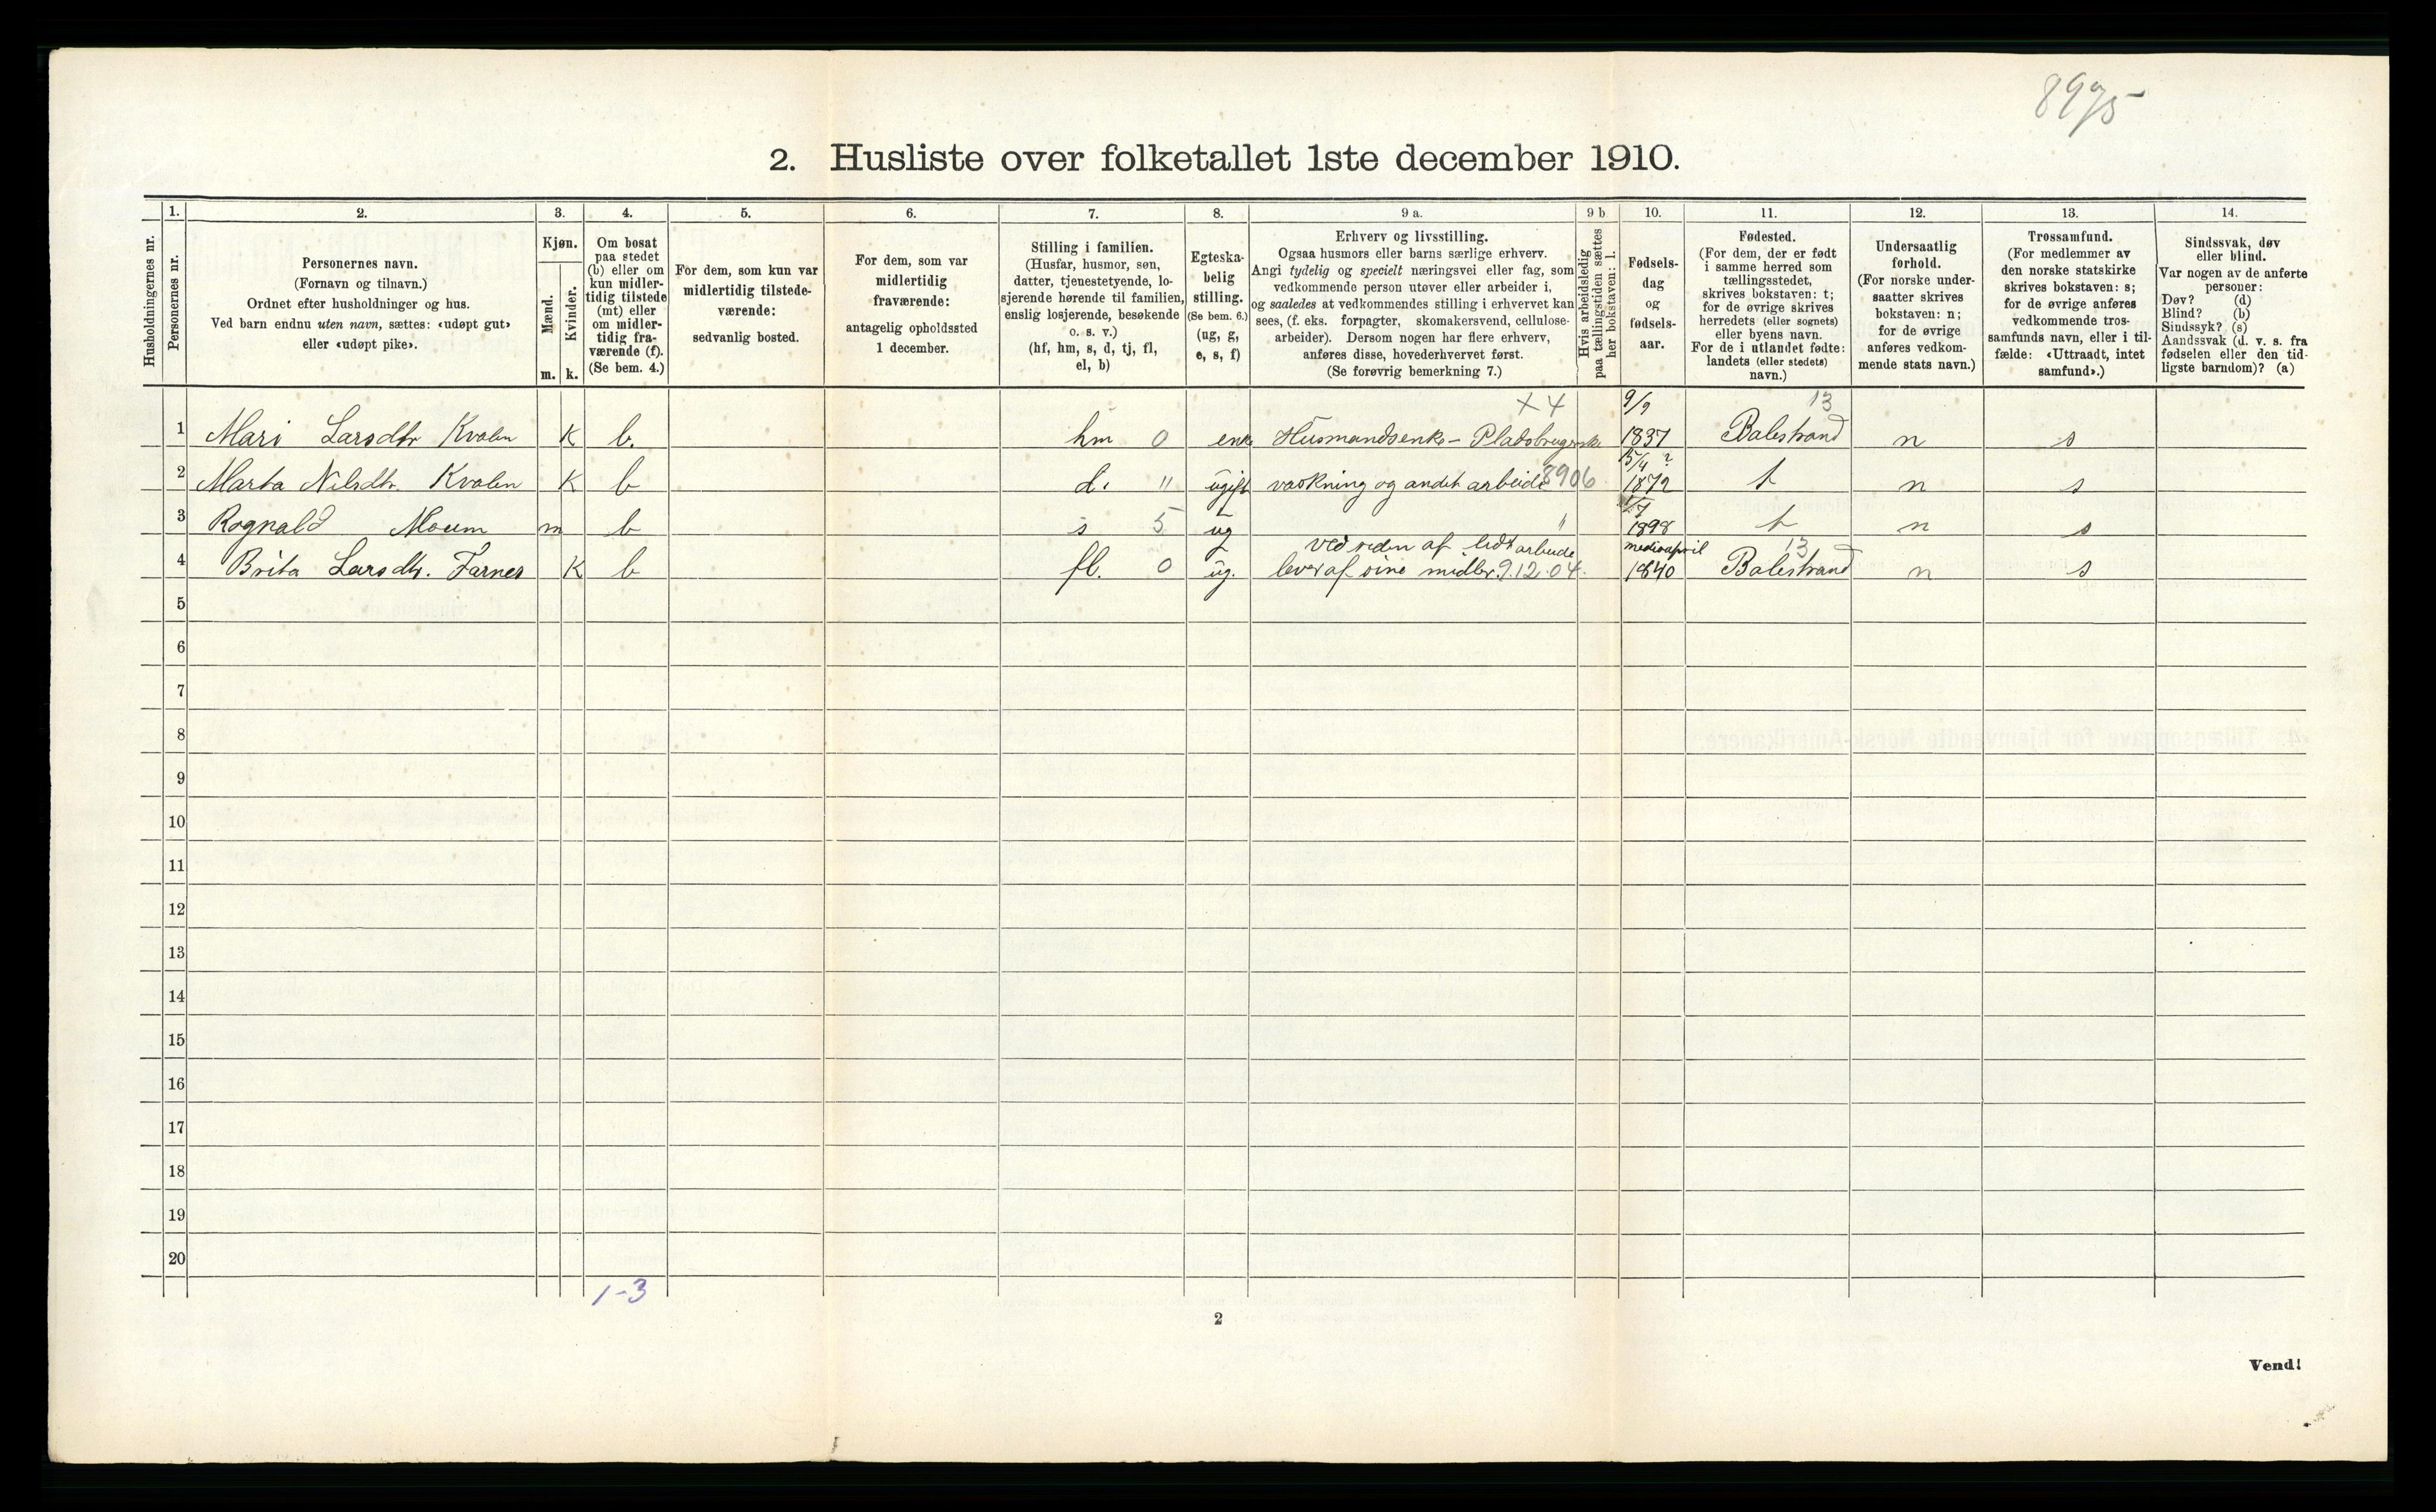 8975
2. Husliste over folketallet 1ste december 1910.
Husholdningernes nr.
1.
Personernes nr.
2.
Personernes navn.
(Fornavn og tilnavn.)
Ordnet efter husholdninger og hus.
Ved barn endnu uten navn, sættes: «udøpt gut»
eller «udøpt pike».
3.
Kjøn.
Mænd.
Kvinder.
m. k.
4.
Om bosat
paa stedet
(b) eller om
kun midler-
tidig tilstede
(mt) eller
om midler-
tidig fra-
værende (f).
(Se bem. 4.)
5.
For dem, som kun var
midlertidig tilstede-
værende:
sedvanlig bosted.
6.
For dem, som var
midlertidig
fraværende:
antagelig opholdssted
1 december.
7.
Stilling i familien.
(Husfar, husmor, søn,
datter, tjenestetyende, lo-
sjerende hørende til familien,
enslig losjerende, besøkende
o. s. v.)
(hf, hm, s, d, tj, fl,
el, b)
8.
Egteska-
belig
stilling.
(Se bem. 6.)
(ug, g,
e, s, f)
9 a.
Erhverv og livsstilling.
Ogsaa husmors eller barns særlige erhverv.
Angi tydelig og specielt næringsvei eller fag, som
vedkommende person utøver eller arbeider i,
og saaledes at vedkommendes stilling i erhvervet kan
sees, (f. eks. forpagter, skomakersvend, cellulose-
arbeider). Dersom nogen har flere erhverv,
anføres disse, hovederhvervet først.
(Se forøvrig bemerkning 7.)
9 b
Hvis arbeidsledig
paa tællingstiden sættes
her bokstaven: l.
10.
Fødsels-
dag
og
fødsels-
aar.
11.
Fødested.
(For dem, der er født
i samme herred som
tællingsstedet,
skrives bokstaven: t;
for de øvrige skrives
herredets (eller sognets)
eller byens navn.
For de i utlandet fødte:
landets (eller stedets)
navn.)
12.
Undersaatlig
forhold.
(For norske under-
saatter skrives
bokstaven: n;
for de øvrige
anføres vedkom-
mende stats navn.)
13.
Trossamfund.
(For medlemmer av
den norske statskirke
skrives bokstaven: s;
for de øvrige anføres
vedkommende tros-
samfunds navn, eller i til-
fælde: «Uttraadt, intet
samfund».)
14.
Sindssvak, døv
eller blind.
Var nogen av de anførte
personer:
Døv? (d)
Blind? (b)
Sindssyk? (s)
Aandssvak (d. v. s. fra
fødselen eller den tid-
ligste barndom)? (a)
x 4 9/9 13
1 Mari Larsdtr Kvalen K b. hm 0 enke Husmandsenke - Pladsbrugerske 1837 Balestrand n s
15/4 ?
2 Marta Nilsdtr. Kvalen K b d. " ugift vaskning og andet arbeide 8906 1872 t n s
3 Rognald Moum m b s 5 ug " 1898 t n s
ved siden af lidt arbeide medio april 13
4 Brita Larsdtr. Farnes K b fl. 0 ug. lever af sine midler. 9.12.04. 1840 Balestrand n s
5
6
7
8
9
10
11
12
13
14
15
16
17
18
19
20
1-3
2
Vend!